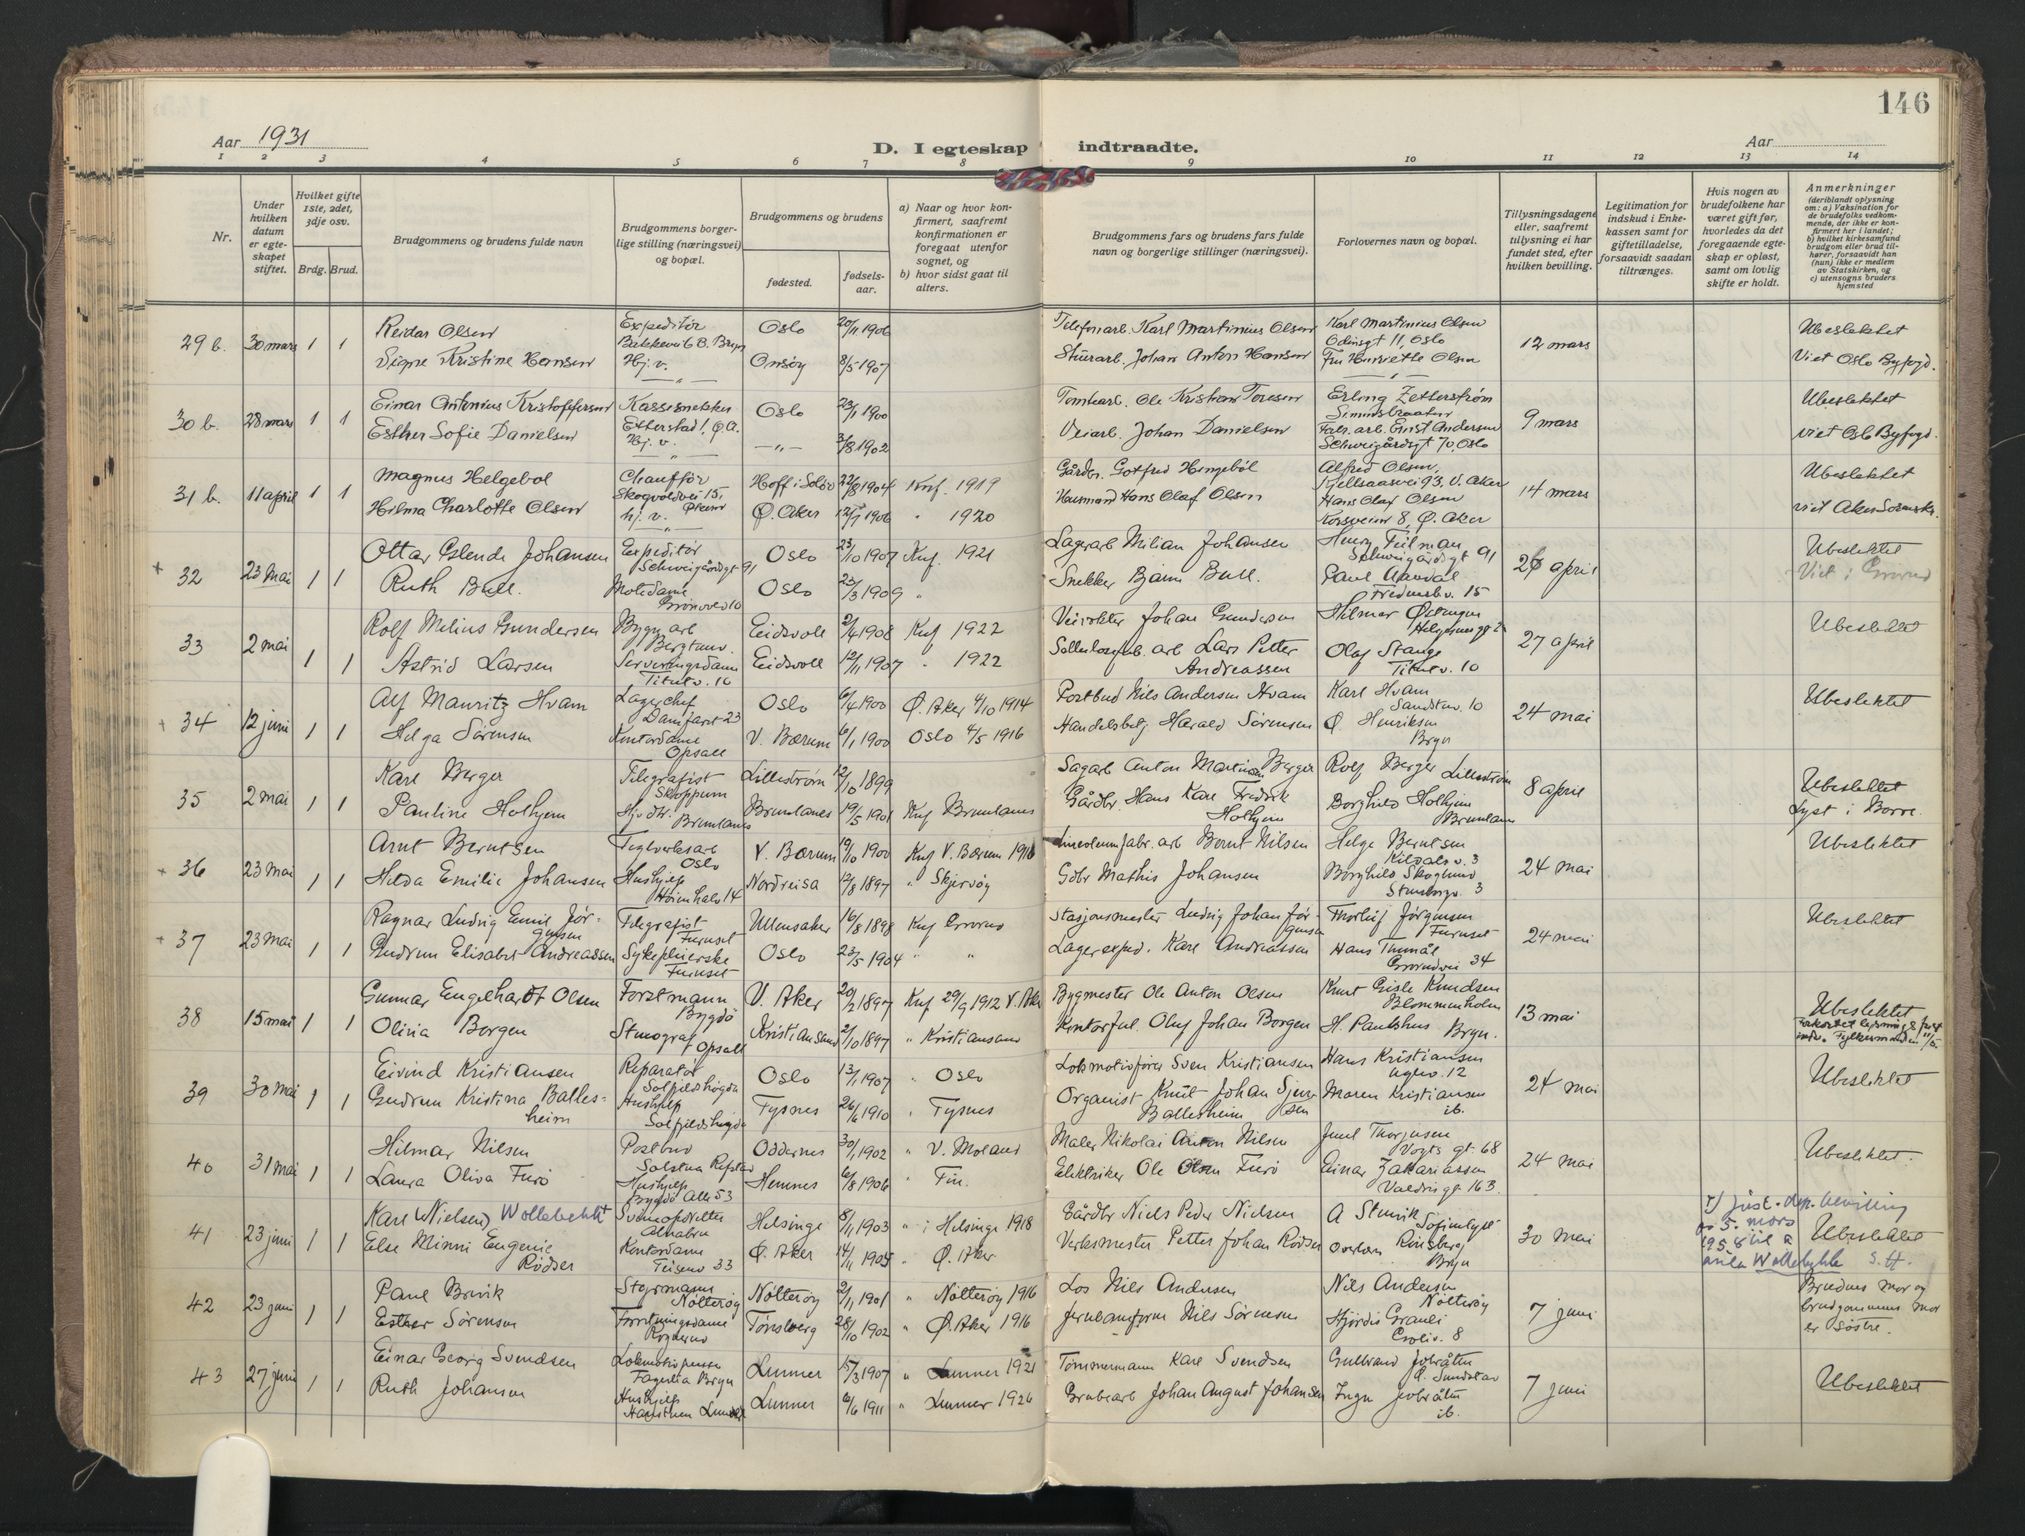 146
Aar 1931
D. I egteskap indtraadte.
Aar
1 2 3 4 5 6 7 8 9. 10 11 12 13 14
Nr.
Under hvilken datum er egteskapet stiftet.
Hvilket gifte 1ste, 2det, 3dje osv.
Brdg. Brud.
Brudgommens og brudens fulde navn
Brudgommens borgerlige stilling (næringsvei) og bopæl.
Brudgommens og brudens
fødested.
fødselsaar.
a) Naar og hvor konfirmert, saafremt konfirmationen er foregaat utenfor sognet, og
b) hvor sidst gaat til alters.
Brudgommens fars og brudens fars fulde navn og borgerlige stillinger (næringsvei).
Forlovernes navn og bopæl.
Tillysningsdagene eller, saafremt tillysning ei har fundet sted, efter hvilken bevilling.
Legitimation for indskud i Enkekassen samt for giftetilladelse, forsaavidt saadan tiltrænges.
Hvis nogen av brudefolkene har været gift før, hvorledes da det foregaaende egteskap er opløst, samt om lovlig skifte er holdt.
Anmerkninger (deriblandt oplysning om: a) Vaksination for de brudefolks vedkommende, der ikke er konfirmert her i landet; b) hvilket kirkesamfund brudgom eller brud tilhører, forsaavidt han (hun) ikke er medlem av Statskirken, og c) utensogns bruders hjemsted
29 b. 30 mars 1 1 Reidar Olsen Expeditør Oslo 20/11 1906 Telefonarb. Karl Martinius Olsen Karl Martinius Olsen Odinsgt 11, Oslo 12 mars Ubeslektet
Signe Kristine Hansen Hj. v. Onsøy 8/5 1907 Stuerarb. Johan Anton Hansen Fru Henriette Olsen Viet Oslo Byfogd.
30 b. 28 mars 1 1 Einar Antonius Kristoffersen Kassesnekker Oslo 23/1 1900 Tomtearb. Ole Kristian Toresen Erling Zetterstrøm 9 mars Ubeslektet
Esther Sofie Danielsen Hj. v. -„- 3/8 1902 Veiarb. Johan Danielsen Fabr. arb. Ernst Andersen Schweigårdsgt 70, Oslo viet Oslo Byfogd.
31 b. 11 april 1 1 Magnus Helgebøl Chauffør Skogvoldvei 15, Hoff i Solør 22/8 1904 Knf. 1919 Gårdbr. Gotfred Hengebøl Alfred Olsen, Kjelsaasvei 93, V. Aker 14 mars Ubeslektet
Hilma Charlotte Olsen hj. v. Ø. Aker 12/7 1906 „ 1920 Husmand Hans Olaf Olsen Hans Olaf Olsen Korsveien 8, Ø. Aker viet Aker Sorenskr.
+ 32 23 Mai 1 1 Ottar Erlende Johansen Expeditør Schweigårdsgt 91 Oslo 23/10 1907 Knf. 1921 Lagerarb Milian Johansen Henry Tideman Schweigårdsgt 91 26 april Ubeslektet
Ruth Bull. Motedame Grønvold 10 Oslo 23/3 1909 „ Snekker Bjarne Bull. Paul Aavdal 15 Viet i Grorud
33 2 mai 1 1 Rolf Milius Gundersen Bygn arb Bergtunv. Eidsvoll 2/4 1908 Knf 1922 Veivokter Johan Gundersen Hilmar Østengen 27 april Ubeslektet
Astrid Larsen Serveringsdame Eidsvoll 12/11 1907 „ 1922 arb Lars Petter Andreassen Olaf Stange 10
+ 34 12 juni 1 1 Alf Mauritz Hvam Lagerchef 23 Oslo 6/4 1900 Ø. Aker 4/10 1914 Postbud Nils Andersen Hvam Karl Hvam Sandstuv. 10 24 mai Ubeslektet
Helga Sørensen Kontordame Opsall V. Bærum 6/1 1900 Oslo 4/5 1916 Handelsbetj. Harald Sørensen Ø. Henriksen Bryn
35 2 mai 1 1 Karl Berger Telegrafist Skoppum Lillestrøm 12/10 1899 Sagarb Anton Martin Berger Rolf Berger Lillestrøm 8 april Ubeslektet
Pauline Holhjem Brunlanes Brunlanes 19/5 1901 Knf Brunlanes Gårdbr Hans Karl Fredrik Holhjem Borghild Holhjem Brunlanes Lyst i Borre.
+ 36 23 mai 1 1 Arnt Berntsen Teglverksarb Oslo V. Bærum 19/10 1900 Knf V. Bærum 1916 Linoleumfabr. arb Bernt Nilsen Helge Berntsen 3 24 mai Ubeslektet
Hilda Emilie Johansen Hushjelp 14 Nordreisa 12/8 1897 „ Skjervøy Gdbr Mathis Johansen Borghild Skoglund 3
+ 37 23 mai 1 1 Ragnar Ludvig Emil Jørgensen Telegrafist Furuset Ullensaker 16/8 1898 Knf Grorud Stasjonsmester Ludvig Johan Jørgensen Thorleif Jørgensen Furuset 24 mai Ubeslektet
Gudrun Elisabet Andreassen Sykepleierske Furuset Oslo 23/5 1904 „ „ Lagerexped. Karl Andreassen Hans Grorudvei 34
38 15 mai 1 1 Gunnar Engelhardt Olsen Forstmann Bygdø V. Aker 20/2 1897 Knf 29/9 1912 V. Aker Bygmester Ole Anton Olsen Knut Gisle Knudsen Blommenholm 13 mai Ubeslektet
Olivia Borgen Stenograf Opsall Kristiansand 2/10 1897 „ Kristiansand Kontorful. Oluf Johan Borgen H. Paulshus Bryn.
39 30 mai 1 1 Eivind Kristiansen Reparatør Solfjeldshøgda Oslo 13/1 1907 „ Oslo Lokomotivfører Sven Kristiansen Hans Kristiansen 12 24 mai Ubeslektet
Gudrun Kristina Ballesheim Hushjelp Solfjeldshøgda Tysnes 26/6 1910 „ Tysnes Organist Knut Johan Ballesheim Maren Kristiansen ib.
40 31 mai 1 1 Hilmar Nilsen Postbud Oddernes 30/1 1902 „ V. Moland Maler Nikolai Anton Nilsen Juul Thorjusen Vogts gt. 68 24 mai Ubeslektet.
Laura Oliva Furø Hushjelp Bygdø Alle 53 Hemnes 6/8 1906 „ Elektriker Ole Olsen Furø Einar Zakariassen Valdresgt 163.
41 23 juni 1 1 Karl (Nielsen) Wollebekk Alnabru Helsinge 8/11 1903 „ i Helsinge 1918 Gårdbr Niels Peder Nielsen A Stenvik 30 mai r) just.dep. bevilling av 5. mars 1958 til å Wollebekk S.H. Ubeslektet
Else Minni Eugenie Rødser Kontordame Teisenv 33 Ø. Aker 14/11 1905 „ Ø. Aker Verksmester Petter Johan Rødser Overlærer Rinsberg Bryn
42 23 juni 1 1 Paul Brevik Styrmann Nøtterøy Nøtterøy 2/11 1901 „ Nøtterøy 1916 Los Nils Andersen Nils Andersen Nøtterøy 7 juni Brudens mor og brudgommens mor er søstre.
Esther Sørensen Forretningsdame Tønsberg 28/10 1902 „ Ø. Aker 1916 Jernbaneform Nils Sørensen Hjørdis Granli 8
43 27 juni 1 1 Einar Georg Svendsen Lokomotivpusser Bryn Lunner 15/3 1907 „ Lunner 1921 Tømmermann Karl Svendsen Gulbrand Jobråten 7 juni Ubeslektet
Ruth Johansen Hushjelp Lunner 6/6 1911 „ Lunner 1926 Grubearb Johan August Johansen Inga Jobråten ib.